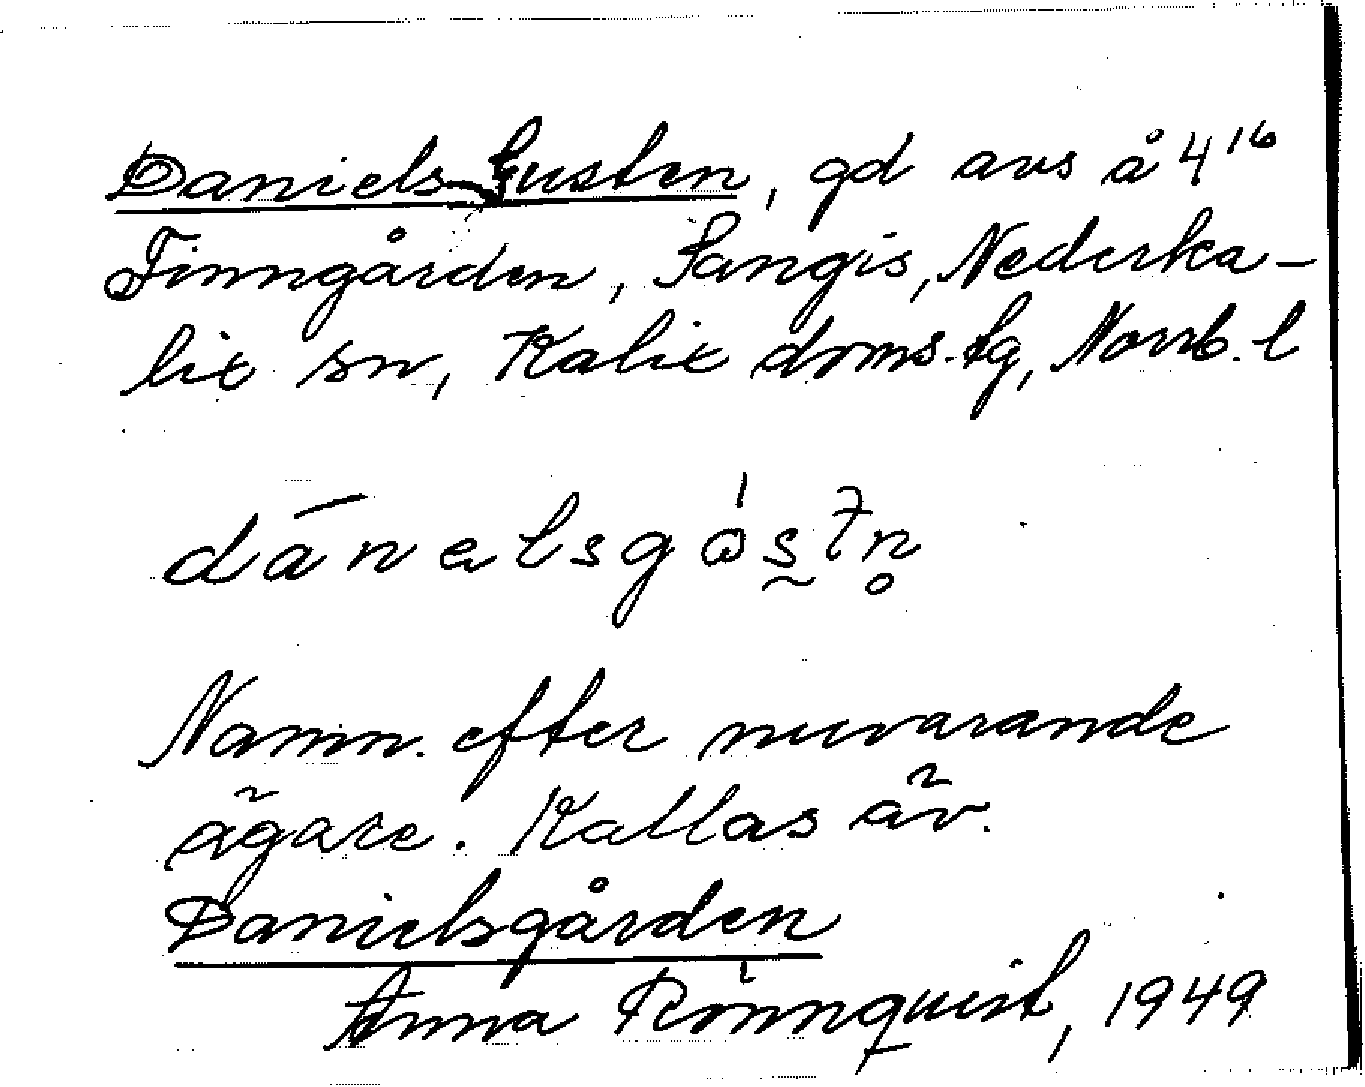 Daniels-Gusten, gd avs å 4¹⁶
Finngården, Sangis, Nederka-
lix sn, Kalix doms. tg, Norrb. l
Namn. efter nuvarande
ägare. Kallas äv.
Danielsgården
Anna Rönnquist, 1949